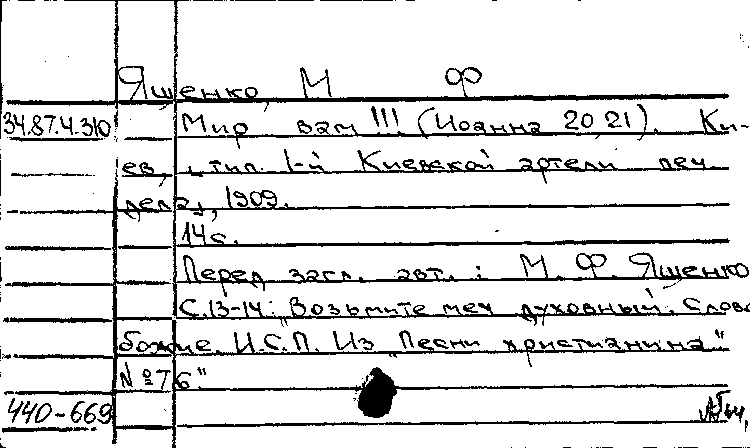 Ященко, М Ф
34.87.4.310 Мир вам!!! (Иоанна 20,21). Ки-
ев, тип. 1-й Киевской артели печ.
дела, 1909.
14с.
Перед загл. авт.: М. Ф. Ященко
С.13-14: "Возьмите меч духовный. Слово
божие. И.С.П. Из "Песни христианина"
№76."
440-669